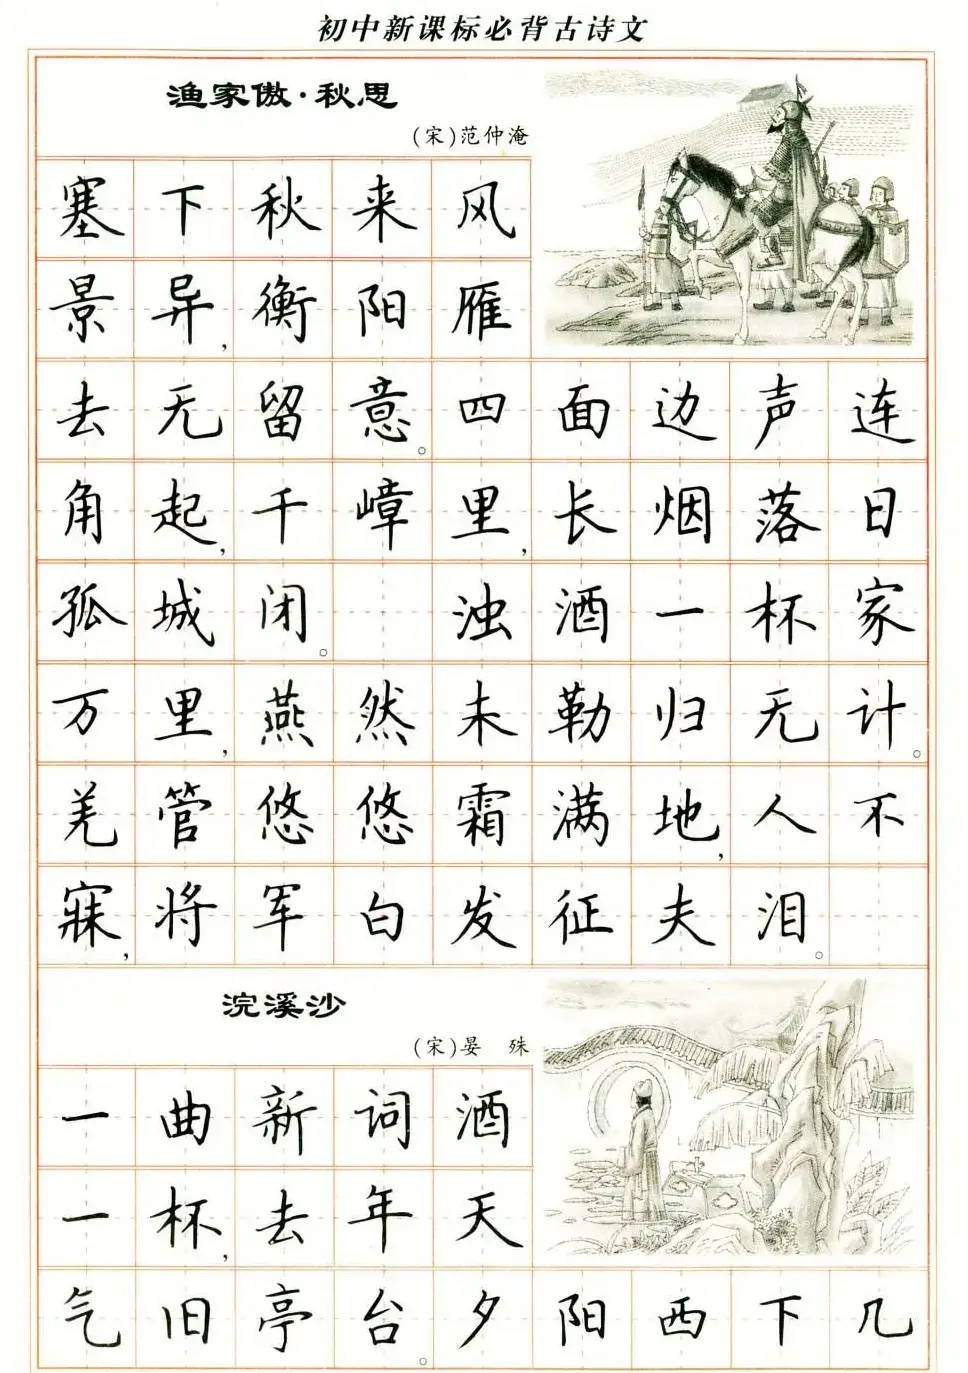 初中新课标必背古诗文
渔家傲·秋思
(宋)范仲淹
塞下秋来风
景异,衡阳雁
去无留意。四面边声连
角起,千嶂里,长烟落日
孤城闭。 浊酒一杯家
万里,燕然未勒归无计。
羌管悠悠霜满地,人不
寐,将军白发征夫泪。
浣溪沙
(宋)晏 殊
一曲新词酒
一杯,去年天
气旧亭台。夕阳西下几